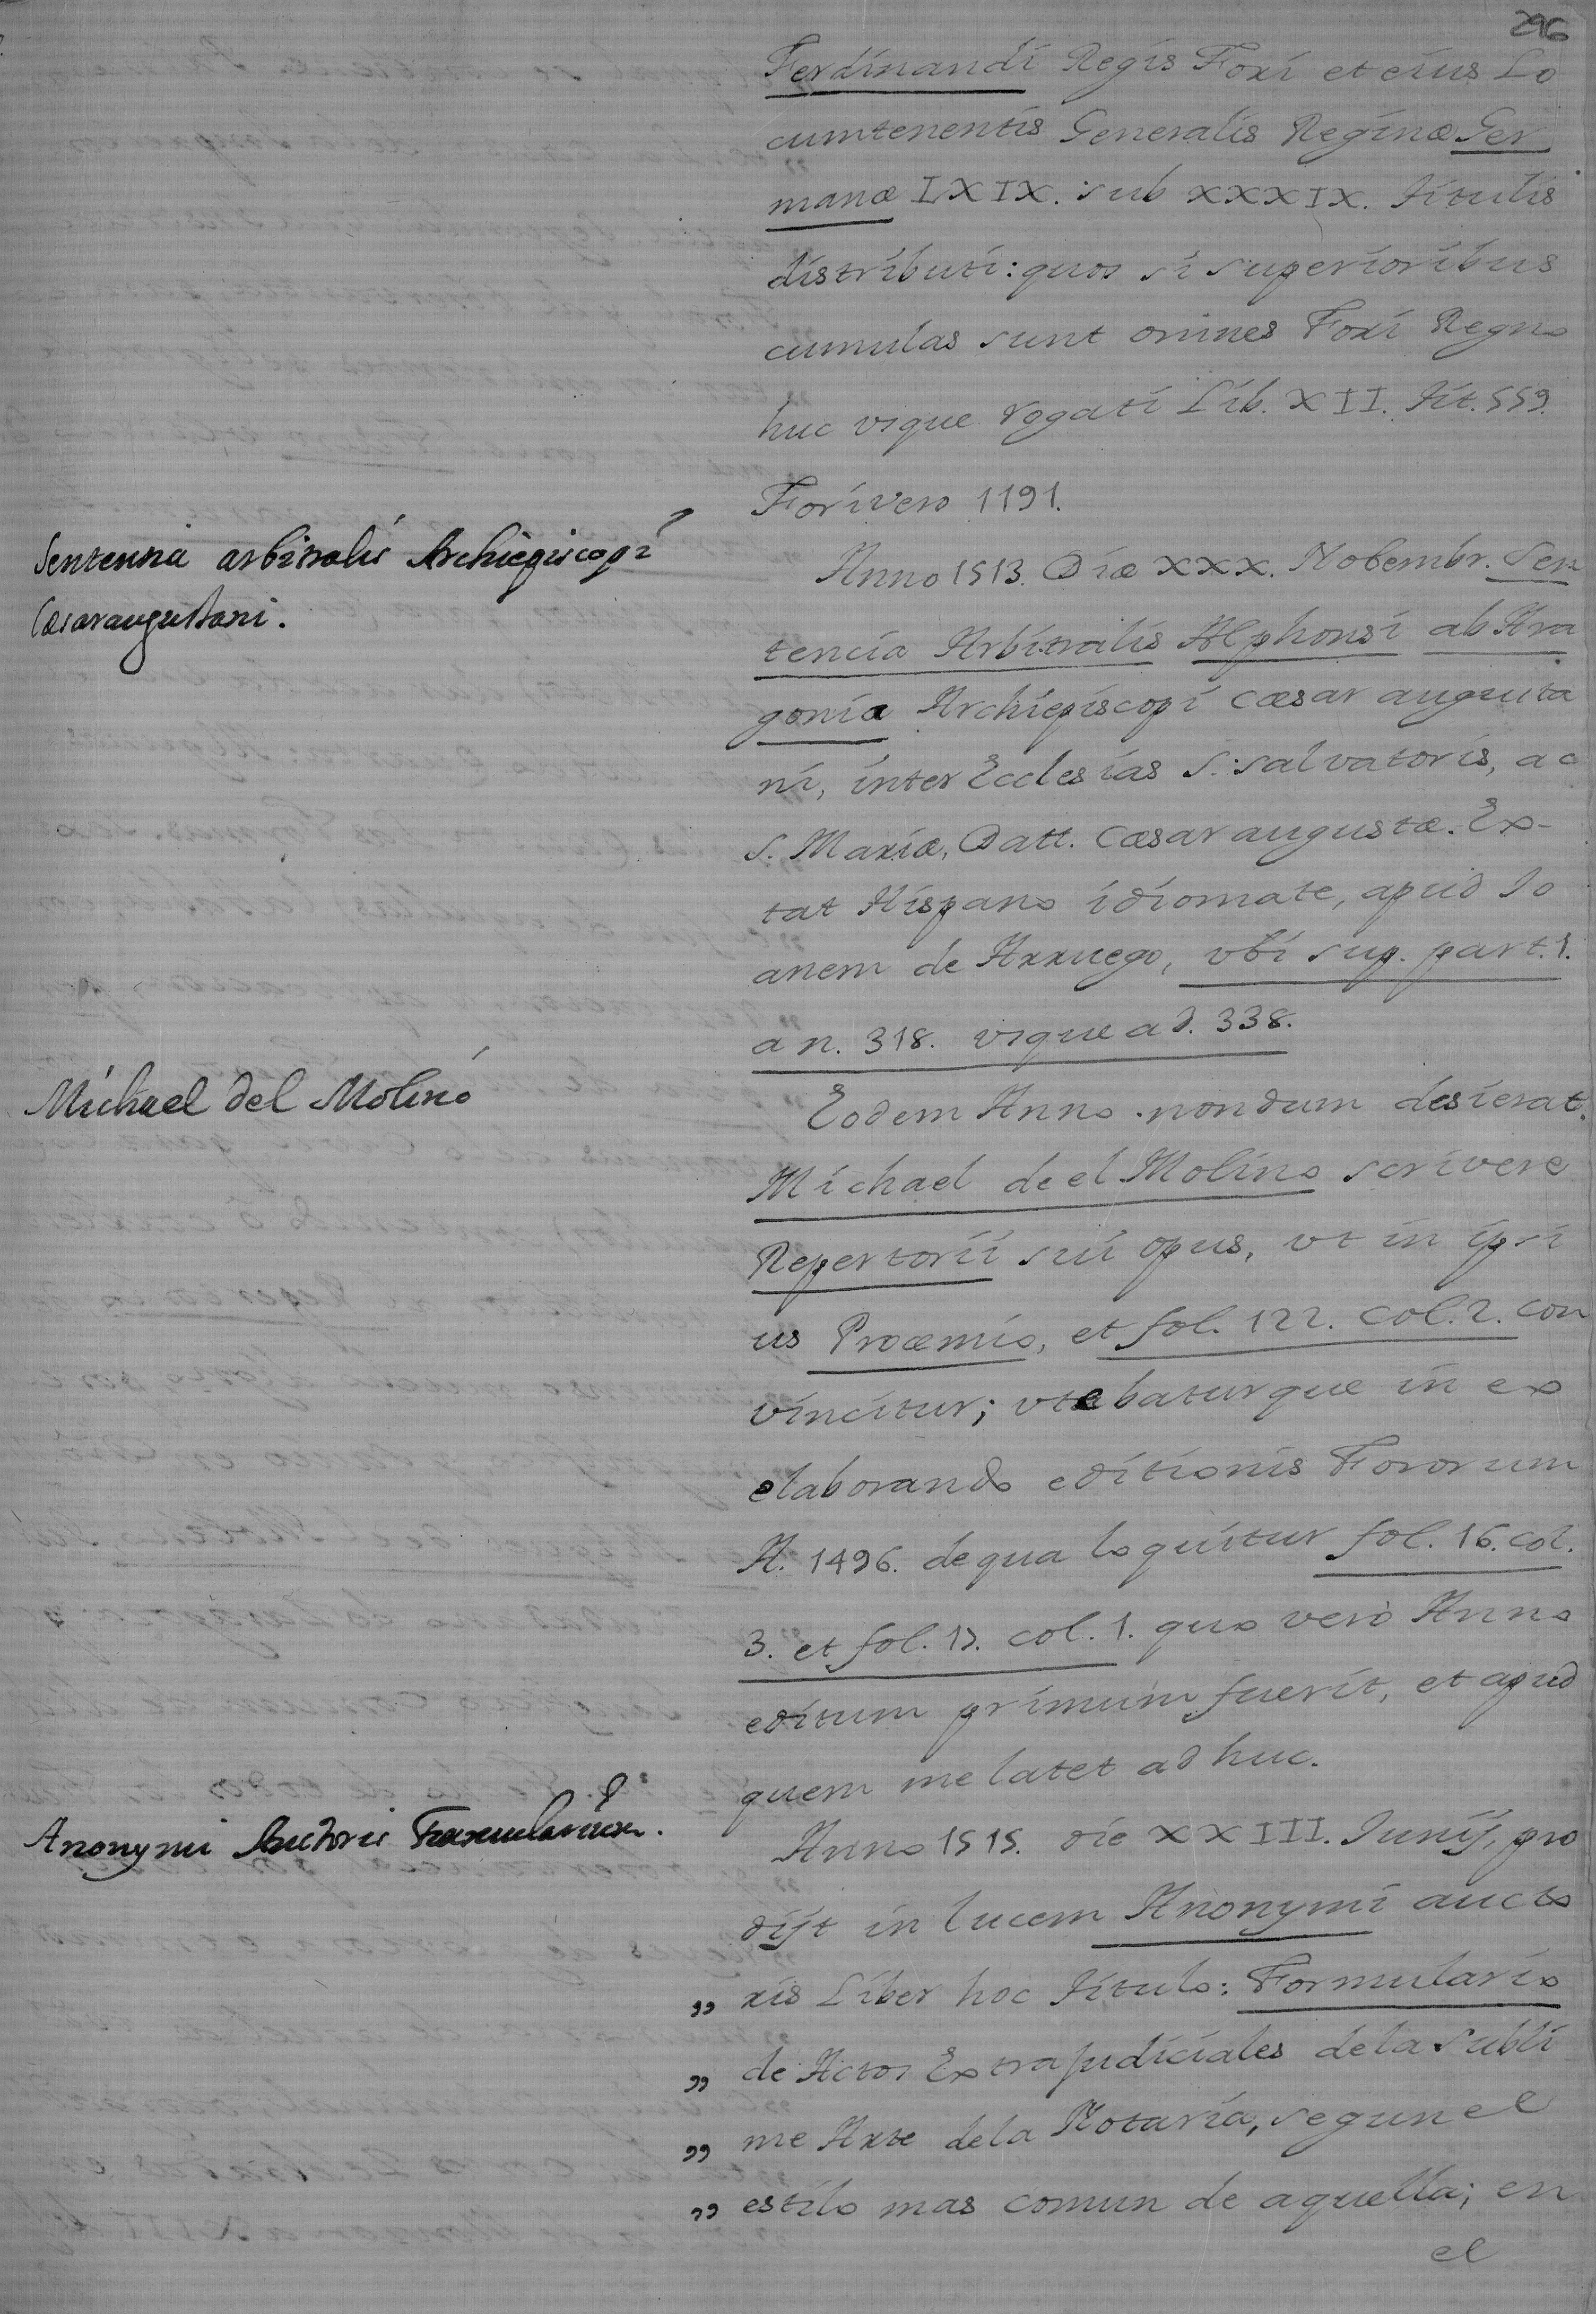 296
Ferdinandi Regis Fori et eius Lo
cumtenentis Generalis Reginæ Ger
manæ LXIX. sub XXXIX. Titulis
distributi: quos si superioribus
cumulas sunt omnes Fori Regno
huc vsque rogati Lib. XII. Tit. 559.
Fori vero 1191.
Sentenria arbitralis Archiepiscopi
Cæsaraugustani.
Anno 1513. Diæ XXX. Nobembr. Sen
tencia Arbitralis Alphonsi ab Ara
gonia Archiepiscopi Cæsar augusta
ni, inter Ecclesias S. Salvatoris, ac
S. Mariæ, Datt. Cæsar augustæ. Ex-
tat Hispano idiomate, apud Jo
anem de Arruego, vbi sup. part. 1.
a n. 318. vsque ad. 338.
Michael del Molino
Eodem Anno nondum desierat
Michael de el Molino scrivere
Repertorii sui opus, vt in ipsi
us Proæmio, et fol. 122. col. 2. con
vincitur; vtebaturque in ex
elaborando editionis Fororum
A. 1496. de qua loquitur fol. 16. col.
3. et fol. 17. col. 1. quo vero Anno
editum primum fuerit, et apud
quem me latet ad huc.
Anonymi Auctoris Formularium.
Anno 1515. die XXIII. Junij, pro
dijt in lucem Anonymi aucto
„ ris Liber hoc titulo: Formulario
„ de Actos Extrajudiciales de la subli
„ me Arte de la Notaria, segun el
„ estilo mas comun de aquella; en
el